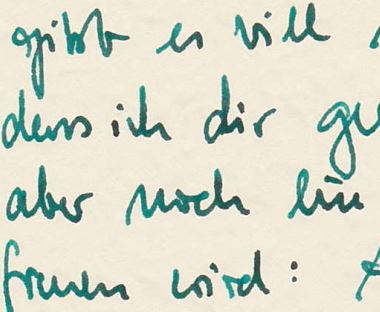 gibt es viel
dass ich dir
aber noch ein
freuen wird: